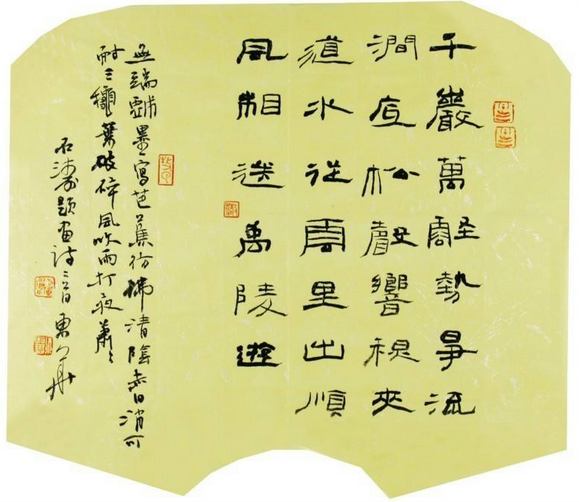 千巖萬壑勢爭流
澗底松聲響視夾
道水從雲里出順
風相送禹陵遊
無端戲墨寫芭蕉彷彿清陰晝日消可
耐三穐葉破碎風吹雨打夜蕭〻
石濤題畫詩二首